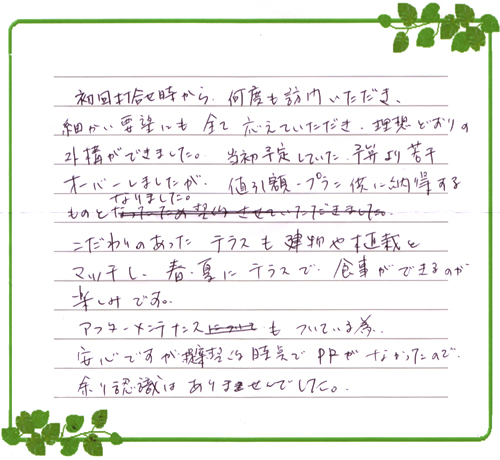 初回打合せ時から、何度も訪問いただき、
細かい要望にも全て応えていただき、理想どおりの
外構ができました。当初予定していた予算より若干
オーバーしましたが、値引額・プラン供に納得する
なりました。
ものとなったため契約させていただきました。
こだわりのあったテラスも建物や植栽と
マッチし、春・夏にテラスで食事ができるのが
楽しみです。
アフターメンテナンスについても ついている為、
安心ですが 契約時点でPRがなかったので、
余り認識はありませんでした。